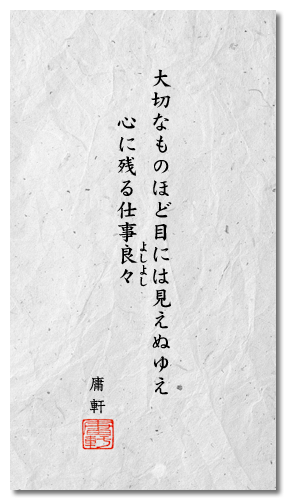 大切なものほど目には見えぬゆえ
心に残る仕事良々
よしよし
庸軒